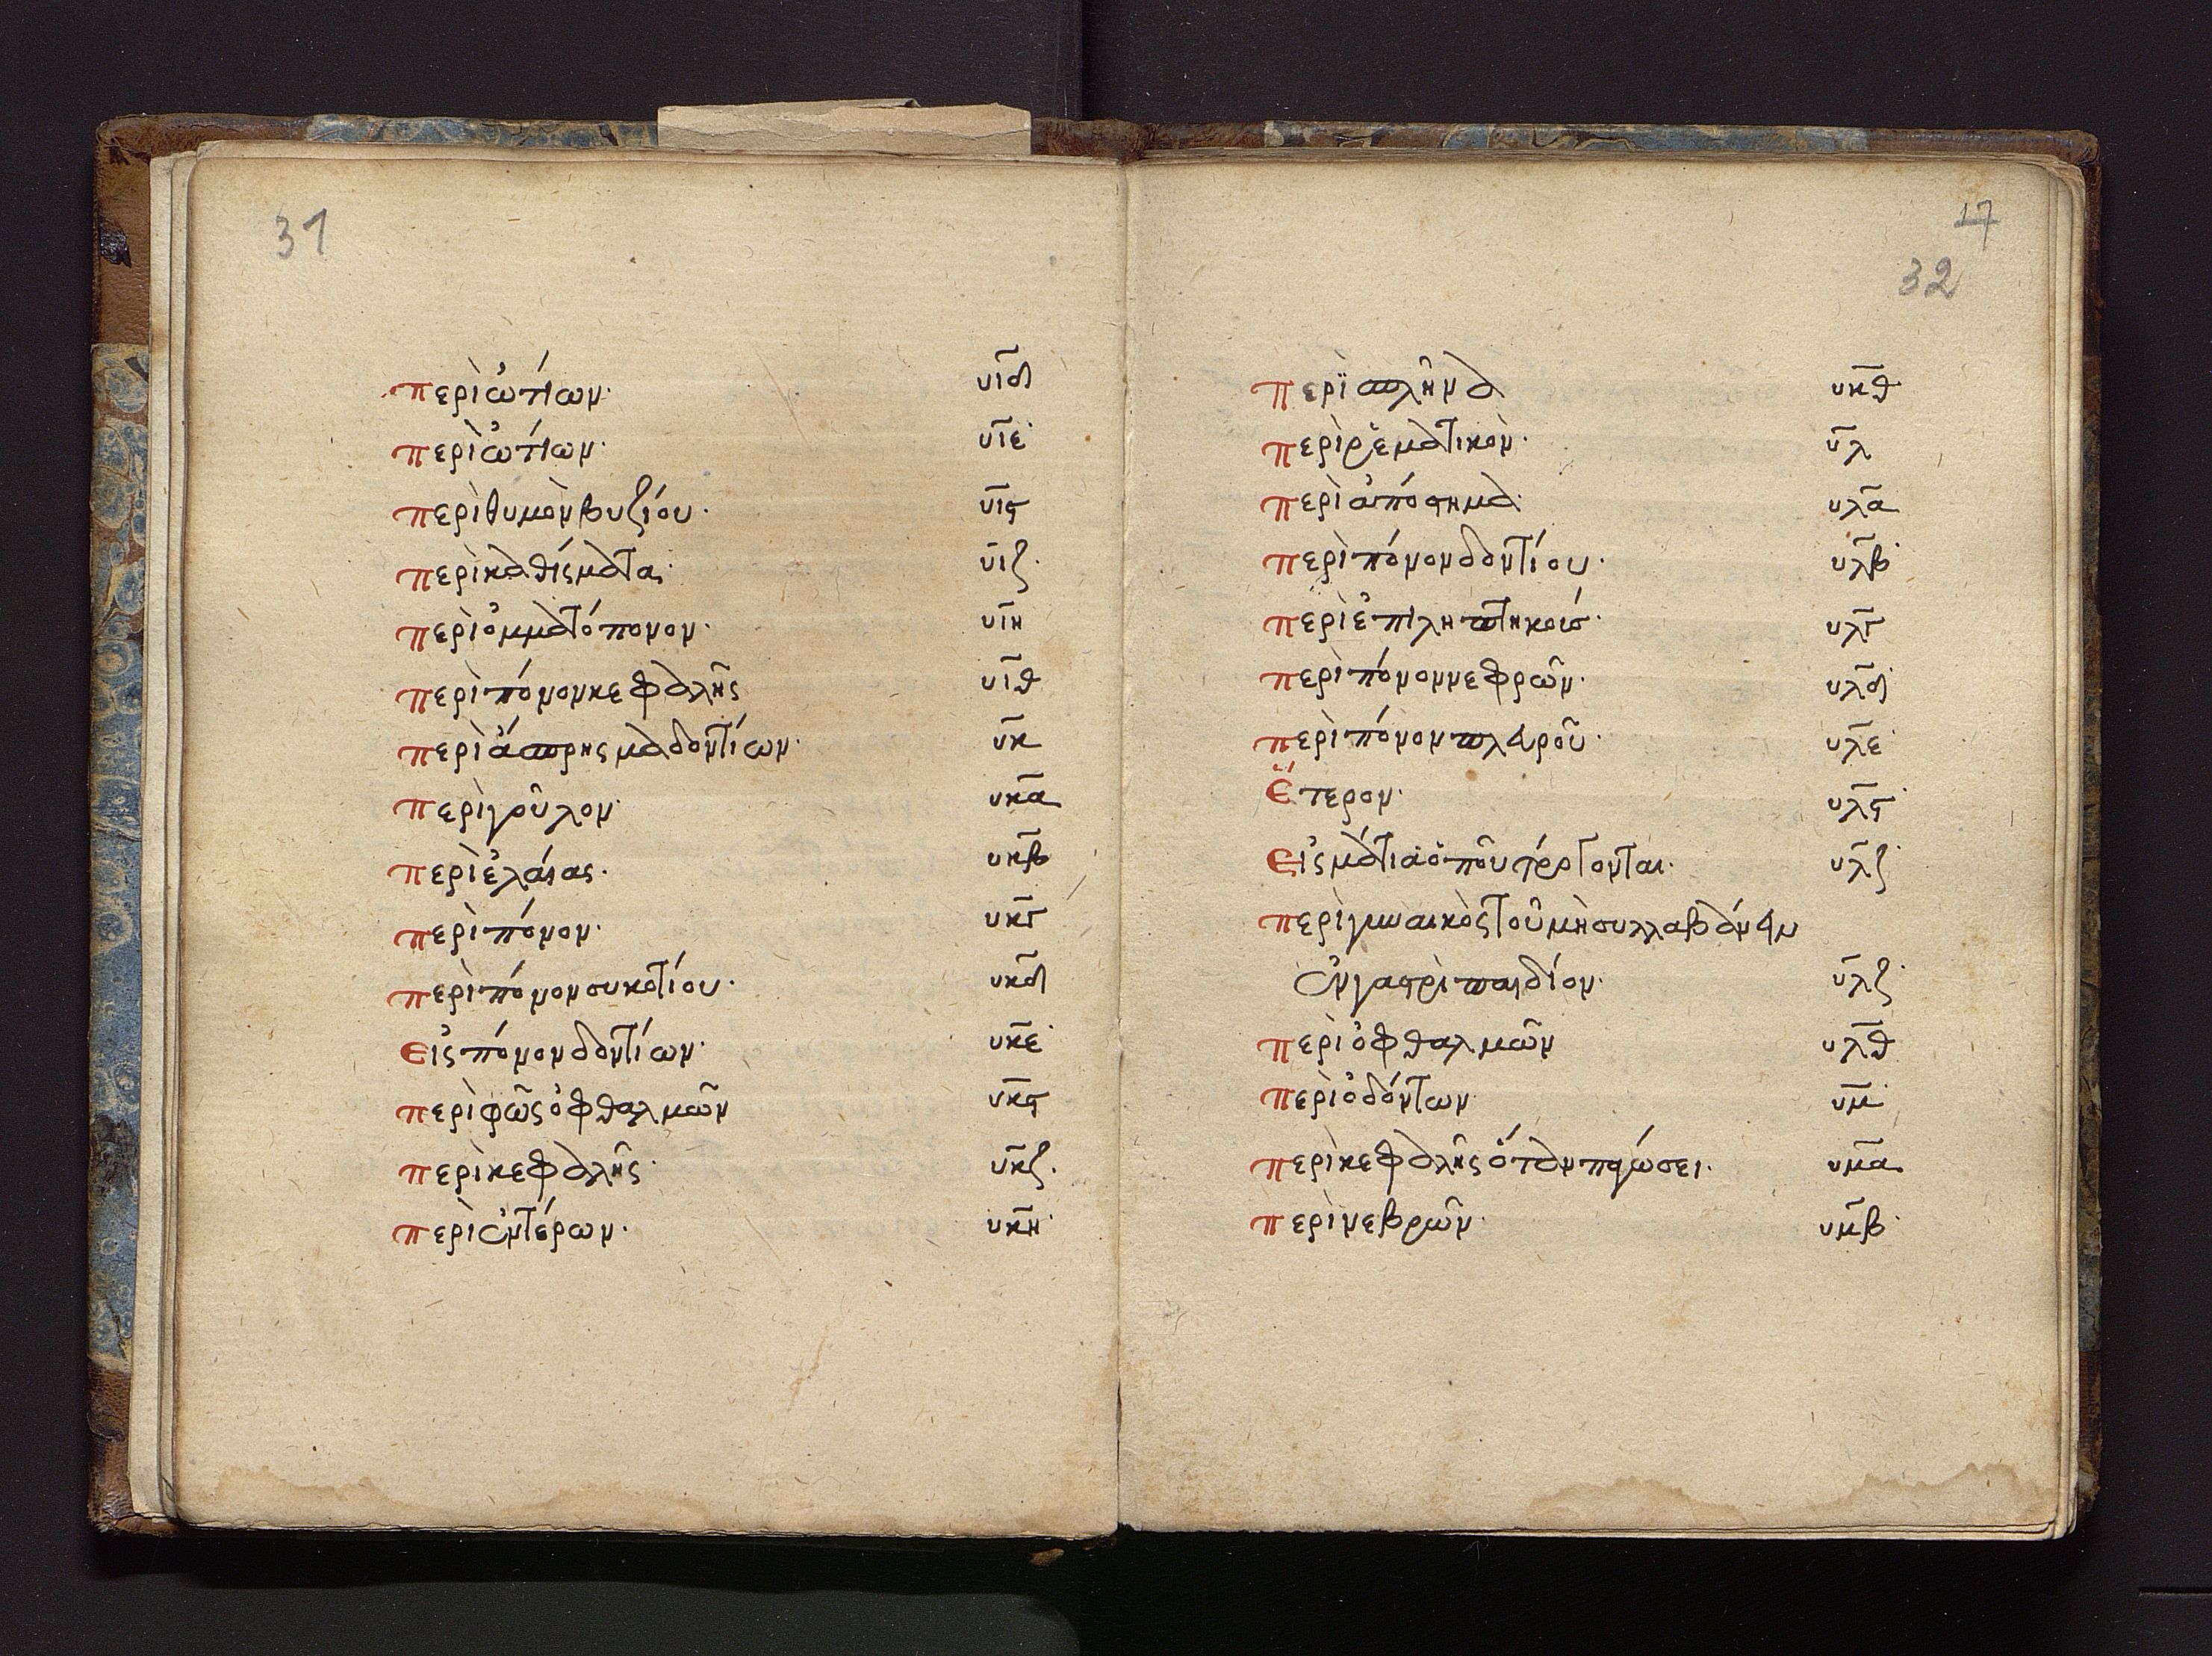 31
περὶ ὠτίων· υιδ
περὶ ὠτίων· υιε
περὶ θυμὸν βυζίου· υις
περὶ καθίσματα· υιζ
περὶ ὀμματόπονον· υιη
περὶ πόνον κεφαλῆς υιθ
περὶ ἄσπρησμα δοντίων· υκ
περὶ γοῦλον· υκα
περὶ ἐλαίας· υκβ
περὶ πόνον· υκγ
περὶ πόνον συκοτίου· υκδ
Εἰς πόνον δοντίων· υκε
περὶ φῶς ὀφθαλμῶν υκς
περὶ κεφαλῆς· υκζ
περὶ ἐντέρων· υκη
17
32
περὶ σπλῆνα υκθ
περὶ ῥεματικὸν· υλ
περὶ ἀπόστημα· υλα
περὶ πόνον δοντίου· υλβ
περὶ ἐπιληπτηκοὺσ· υλγ
περὶ πόνον νεφρῶν· υλδ
περὶ πόνον πλευροῦ· υλε
Ἕτερον· υλς
Εἰς μάτια ὁποῦ τρέτονται· υλζ
περὶ γυναικὸς τοῦ μὴ συλλαβάνειν
ἐν γαστρὶ παιδίον· υλζ
περὶ ὀφθαλμῶν υλθ
περὶ ὀδόντων υμ
περὶ κεφαλῆς ὅταν πυώσει· υμα
περὶ νεβρῶν· υμβ